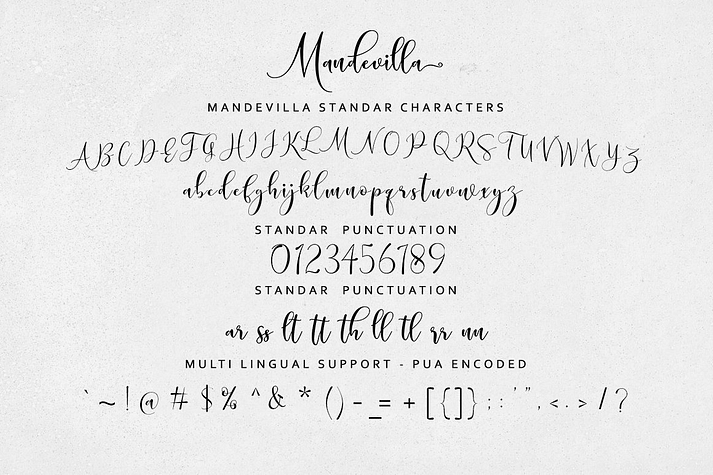 Mandevilla
MANDEVILLA STANDAR CHARACTERS
ABCDEFGHIJKLMNOPQRSTUVWXYZ
abcdefghijklmnopqrstuvwxyz
STANDAR PUNCTUATION
0123456789
STANDAR PUNCTUATION
ar ss lt tt th ll tl rr nn
MULTI LINGUAL SUPPORT - PUA ENCODED
` ~ ! @ # $ % ^ & * ( ) - _ = + [ { ] } ; : ' " , < . > / ?